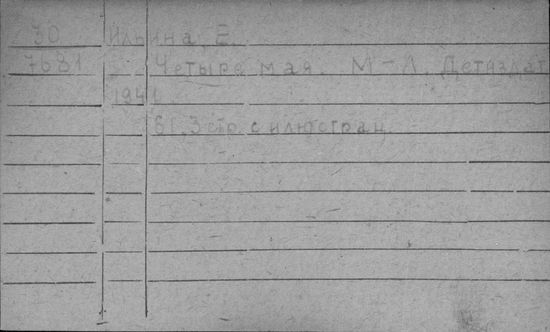 30 Ильина, Е.
7681 Четыре мая. М-Л. Детиздат
194
61,3 стр. с илюстрац.